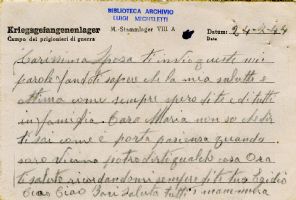 BIBLIOTECA ARCHIVIO
LUIGI MICHELETTI
Kriegsgefangenenlager
M.-Stammlager VIII A
Datum: 24-2-44
Campo dei prigionieri di guerra
Carissima Sposa ti invio queste mie
parole facendoti sapere che la mia salute e
ottima come sempre spero di te e di tutti
in famiglia. Cara Maria non so che dirti
ti sai come è porta pasiensa quando
saro vicino potro dirti qualche cosa Ora
ti saluto ricordandomi sempre di te tuo
Ciao Ciao Saluta tutti